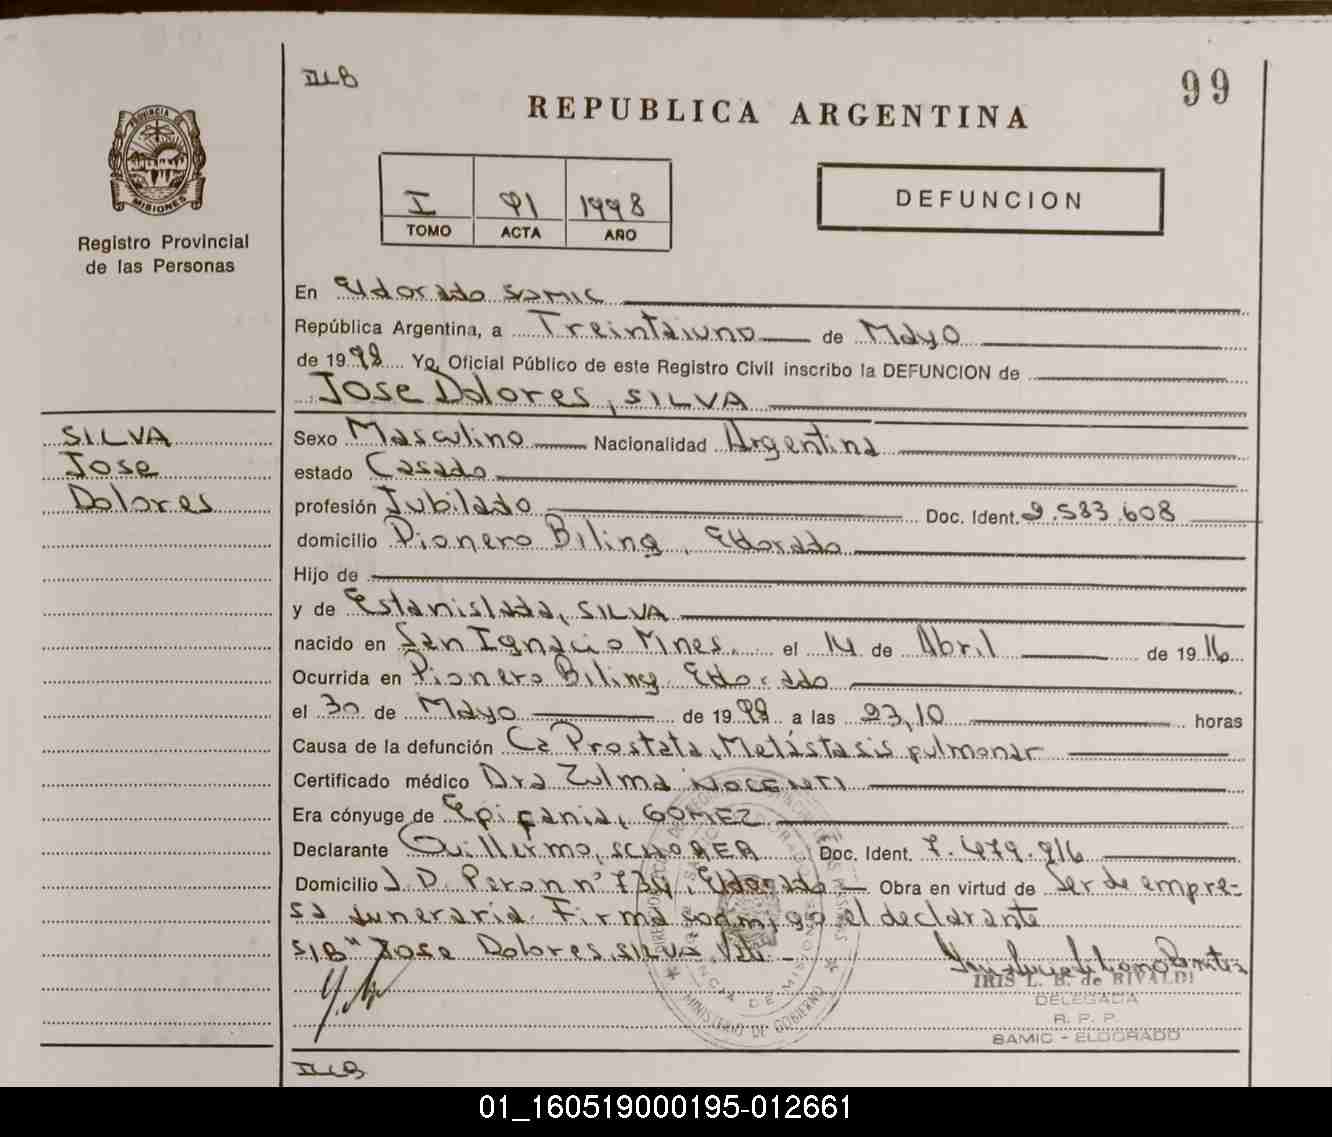 ILB
99
REPUBLICA ARGENTINA
PROVINCIA DE MISIONES
Registro Provincial
de las Personas
I 91 1998
TOMO ACTA AÑO
DEFUNCION
En Eldorado SAMIC
República Argentina, a Treintaiuno de Mayo
de 1998 Yo, Oficial Público de este Registro Civil inscribo la DEFUNCION de
Jose Dolores, SILVA
SILVA
Jose
Dolores
Sexo Masculino Nacionalidad Argentina
estado Casado
profesión Jubilado Doc. Ident. 2.583.608
domicilio Pionero Biling, Eldorado
Hijo de
y de Estanislada, SILVA
nacido en San Ignacio Mnes. el 14 de Abril de 1916
Ocurrida en Pionero Biling Eldorado
el 30 de Mayo de 1998 a las 23,10 horas
Causa de la defunción Ca Prostata, Metástasis pulmonar
Certificado médico Dra Zulma NOCENTI
Era cónyuge de Epifania, GOMEZ
Declarante Guillermo, SCHORER Doc. Ident. 7.479.916
Domicilio J. D. Peron nº 734, Eldorado Obra en virtud de Ser de empre-
sa funeraria. Firma conmigo el declarante
S/B "Jose Dolores, SILVA
IRIS L. B. de RIVALDI
DELEGADA
R. P. P.
SAMIC - ELDORADO
MINISTERIO DE GOBIERNO
ILB
01_160519000195-012661